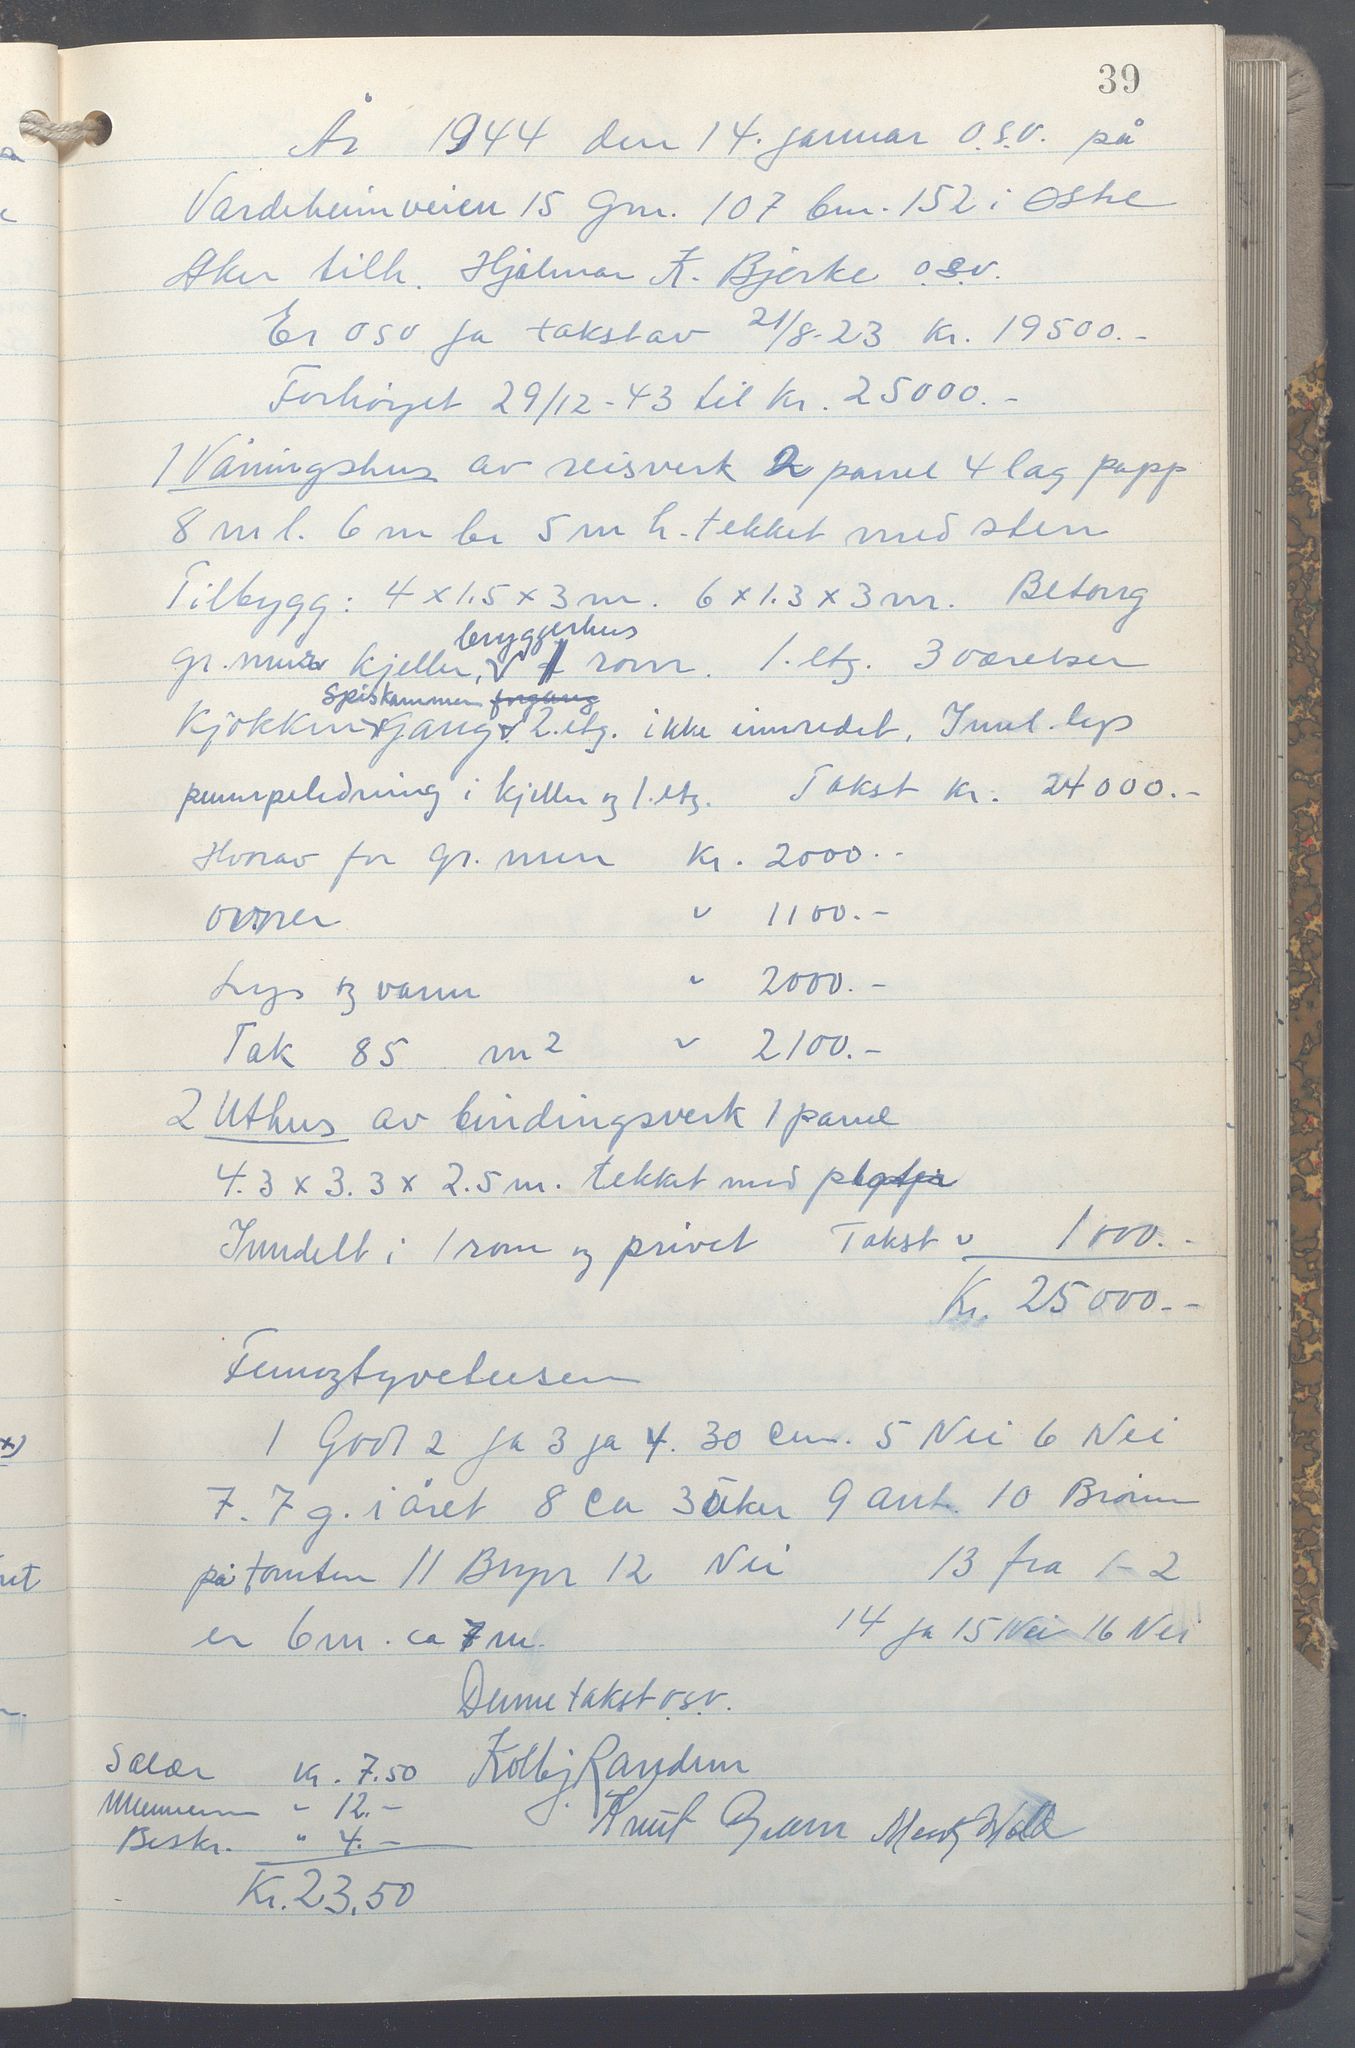 39
År 1944 den 14. januar o.s.v. på
Vardeheimveien 15 Gnr. 107 bnr. 152 i Østre
Aker tilh. Hjalmar K. Bjerke o.s.v.
Er oso ja takst av 21/8-23 Kr. 19500.-
Forhöyet 29/12-43 til Kr. 25000.-
1 Våningshus av reisverk 2 panel 4 lag papp
8 m l. 6 m br 5 m h. tekket med sten
Tilbygg: 4 x 1.5 x 3 m. 6 x 1.3 x 3 m. Betong
bryggerhus
gr. mur kjeller, 1 rom. 1. etg. 3 værelser
Spiskammer forgang
Kjökken gang 2. etg. ikke innredet, Innl. lys
pumpeledning i kjeller og 1. etg. Takst Kr. 24000.-
Hvorav for gr. mur Kr. 2000.-
ovner " 1100.-
Lys og vann " 2000.-
Tak 85 m2 " 2100.-
2 Uthus av bindingsverk 1 panel
4.3 x 3.3 x 2.5 m. tekket med
Inndelt i 1 rom og privet Takst " 1000.-
Kr. 25000.-
Femogtyvetusen
1 Godt 2 ja 3 ja 4. 30 cm. 5 Nei 6 Nei
7. 7 g. i året 8 Ca 3 uker 9 ant. 10 Brönn
på tomten 11 Bryn 12 Nei 13 fra 1-2
er 6 m. ca 7 m. 14 ja 15 Nei 16 Nei
Denne takst osv.
Salær Kr. 7.50 Kolbj. Randum
" 12.- Knut
Beskr. " 4.-
Kr. 23,50